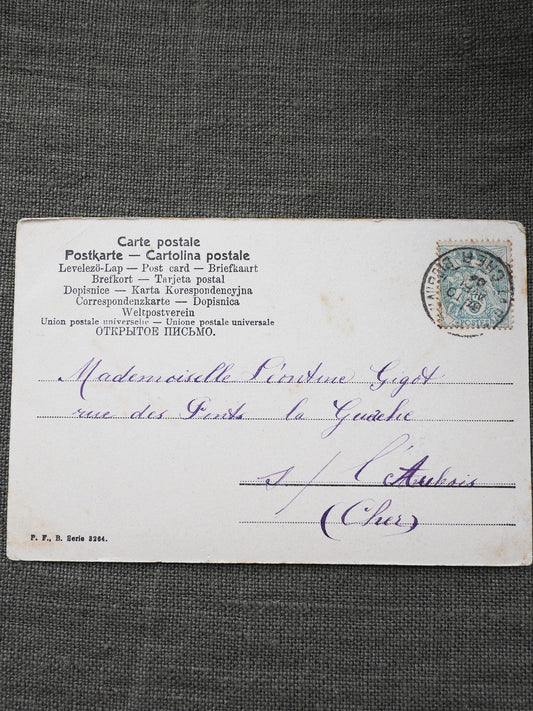 Carte postale
Postkarte — Cartolina postale
Levelező-Lap — Post card — Briefkaart
Brefkort — Tarjeta postal
Dopisnice — Karta Korespondencyjna
Correspondenzkarte — Dopisnica
Weltpostverein
Union postale universelle — Unione postale universale
ОТКРЫТОЕ ПИСЬМО.
Mademoiselle Léontine Gigot
rue des Ponts la Guêche
s/ l'Aubois
(Cher)
P. F., B. Serie 3264.